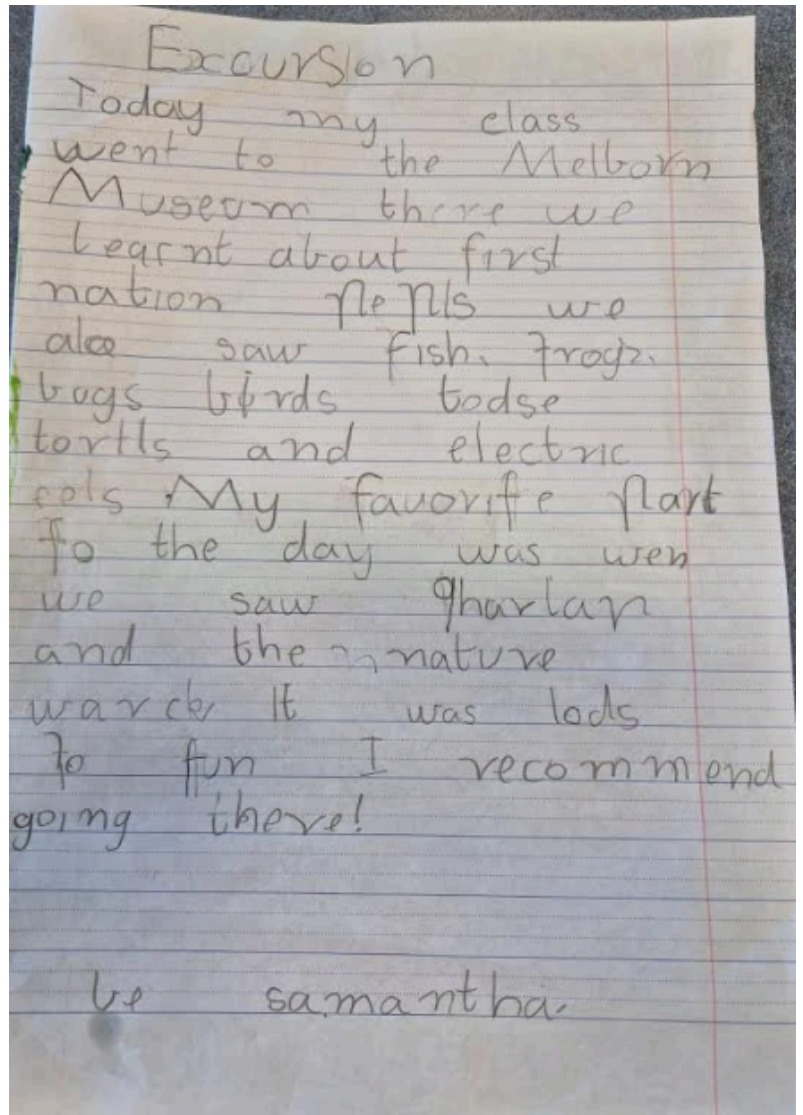 Excursion
Today my class
went to the Melborn
Museum there we
learnt about first
nation pepls we
also saw fish, frogs,
bugs birds todse
tortls and electric
eels My favorite part
fo the day was wen
we saw gharlan
and the nature
warck, It was lods
fo fun I recommend
going there!
be samantha.